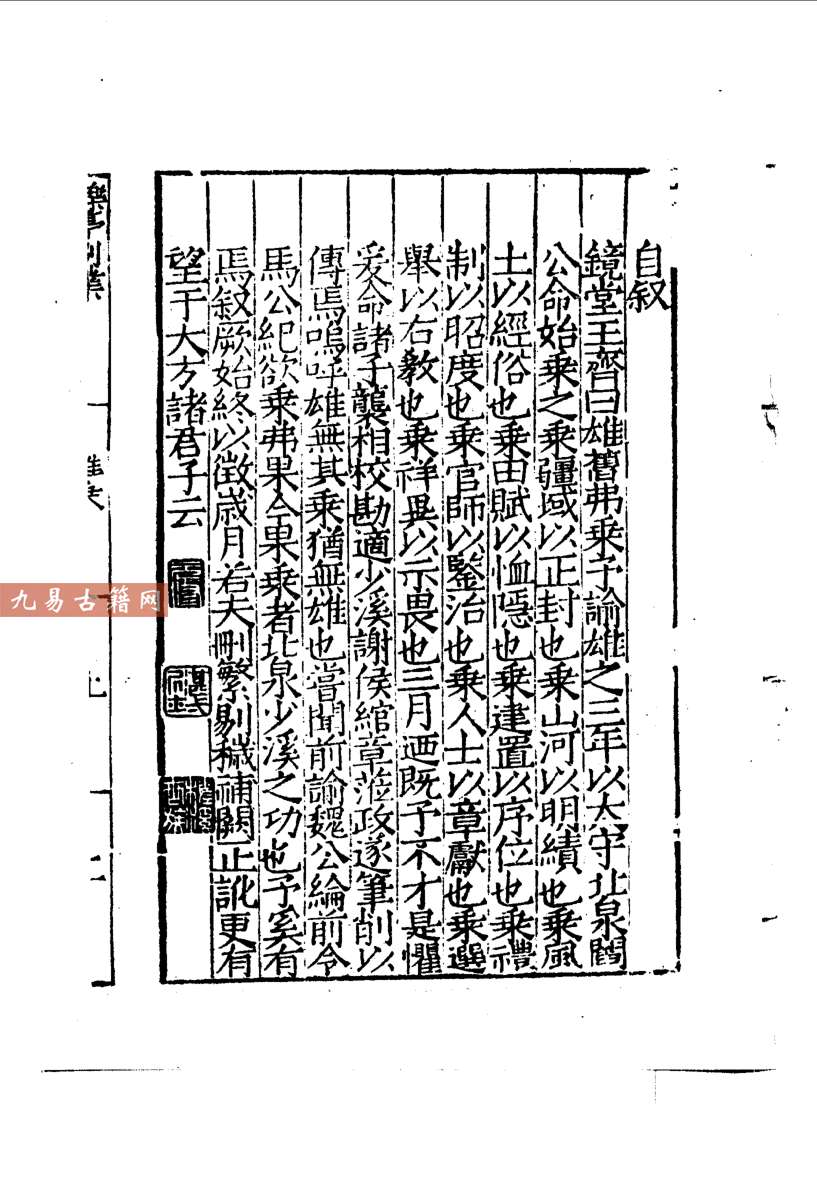 自叙
鏡堂王齊曰雄舊弗乘予諭雄之三年以太守北泉閻
公命始乘之乘疆域以正封也乘山河以明績也乘風
土以經俗也乘田賦以恤隱也乘建置以序位也乘禮
制以昭度也乘官師以鑒治也乘人士以章獻也乘選
舉以右敎也乘祥異以示畏也三月迺既予不才是懼
爰命諸子襲相校勘適少溪謝侯綰章蒞政遂筆削以
傳焉嗚呼雄無其乘猶無雄也嘗聞前諭魏公綸前令
馬公紀欲乘弗果今果乘者北泉少溪之功也予奚有
焉叙厥始終以徵歲月若夫刪繁剔穢補闕正訛更有
望于大方諸君子云
九易古籍网